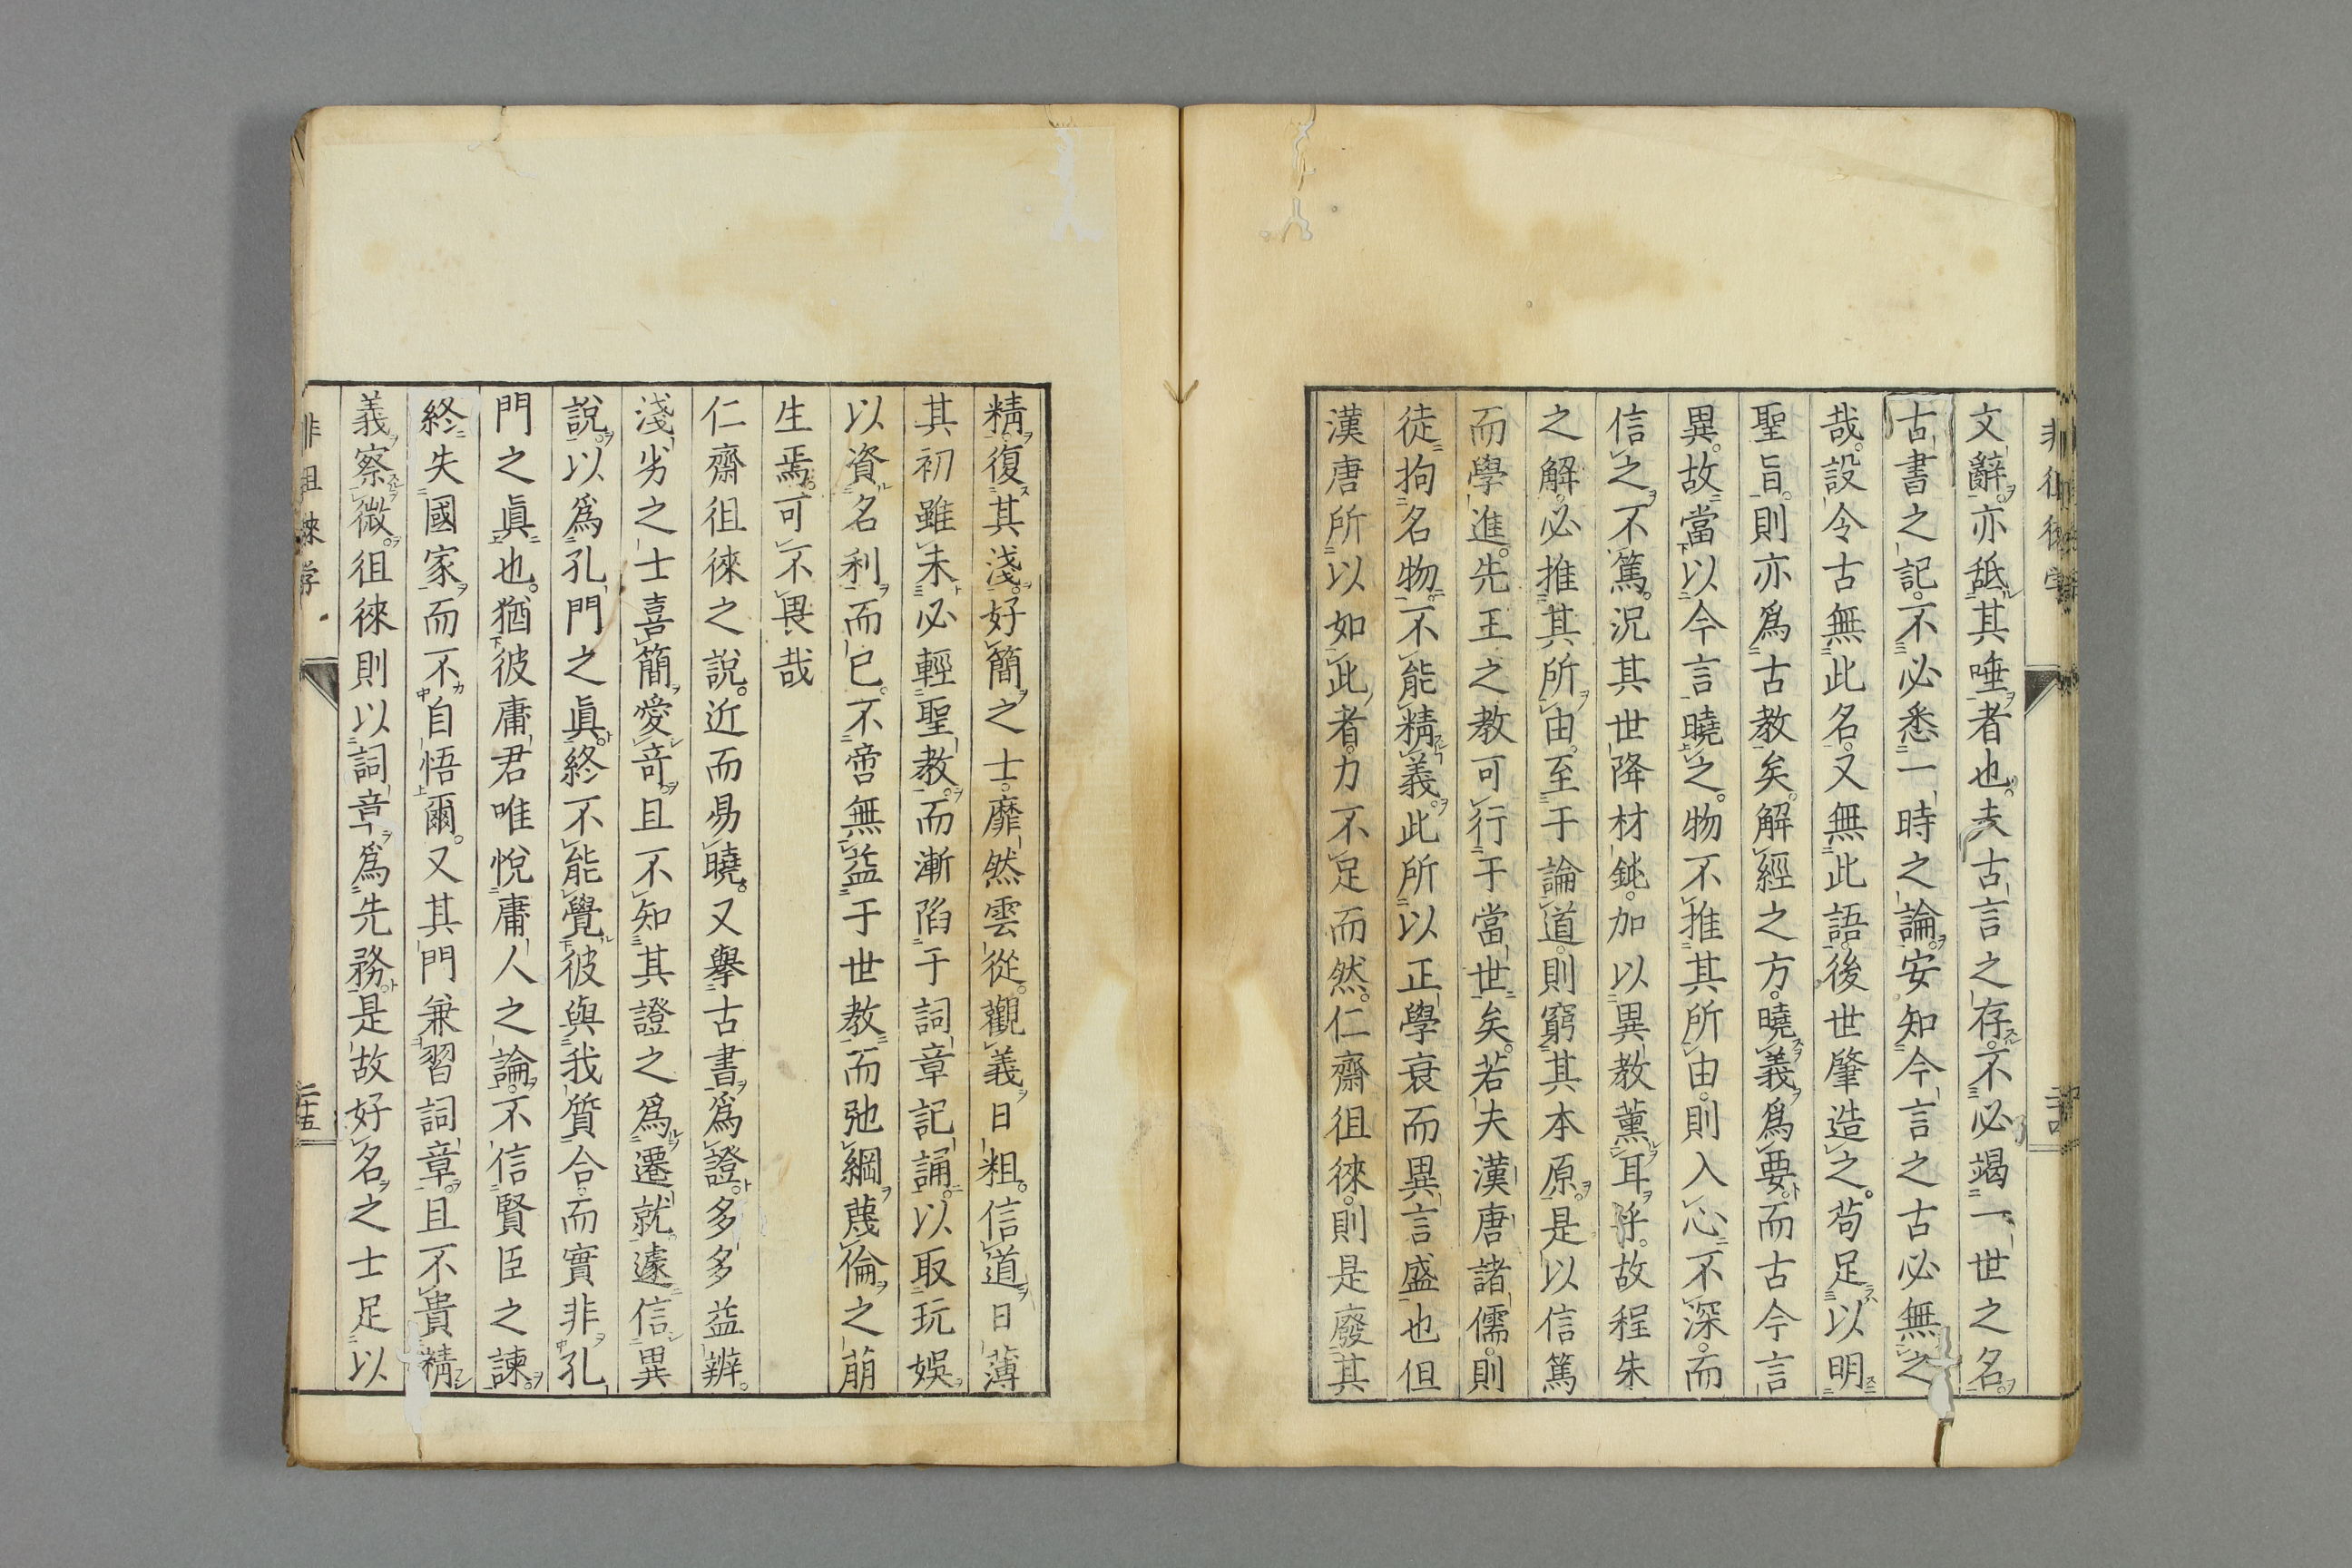 文辭亦舐其唾者也夫古言之存不必竭一世之名
古書之記不必悉一時之論安知今言之古必無之
哉設令古無此名又無此語後世肇造之苟足以明
聖旨則亦爲古教矣解經之方曉義爲要而古今言
異故當以今言曉之物不推其所由則入心不深而
信之不篤況其世降材鈍加以異教薰耳乎故程朱
之解必推其所由至于論道則窮其本原是以信篤
而學進先王之教可行于當世矣若夫漢唐諸儒則
徒拘名物不能精義此所以正學衰而異言盛也但
漢唐所以如此者力不足而然仁齋徂徠則是廢其
精復其淺好簡之士靡然雲從觀義日粗信道日薄
其初雖未必輕聖教而漸陷于詞章記誦以取玩娛
以資名利而已不啻無益于世教而弛綱蔑倫之萠
生焉可不畏哉
仁齋徂徠之說近而易曉又擧古書爲證多多益辨
淺劣之士喜簡愛奇且不知其證之爲遷就遽信異
說以爲孔門之眞終不能覺彼與我質合而實非孔
門之眞也猶彼庸君唯悅庸人之論不信賢臣之諫
終失國家而不自悟爾又其門兼習詞章且不貴精
義察微徂徠則以詞章爲先務是故好名之士足以
非徂徠学
二十五